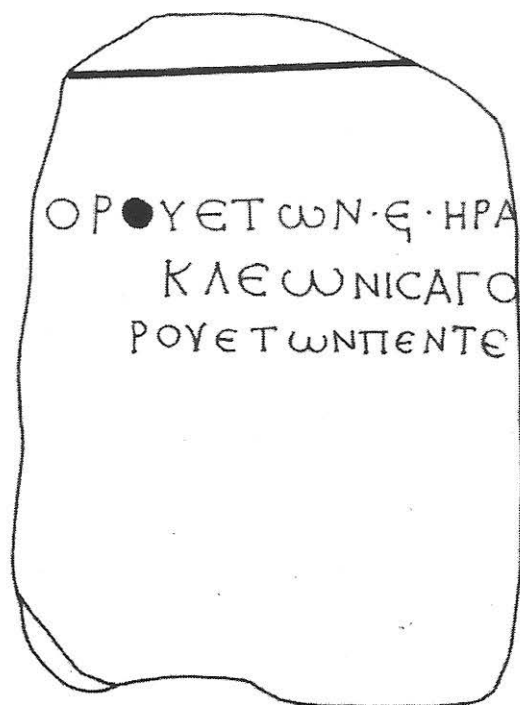 ΟΡΟΥΕΤωΝ·Ϛ·ΗΡΑ
ΚΛΕωΝΙϹΑΓΟ
ΡΟΥΕΤωΝΠΕΝΤΕ